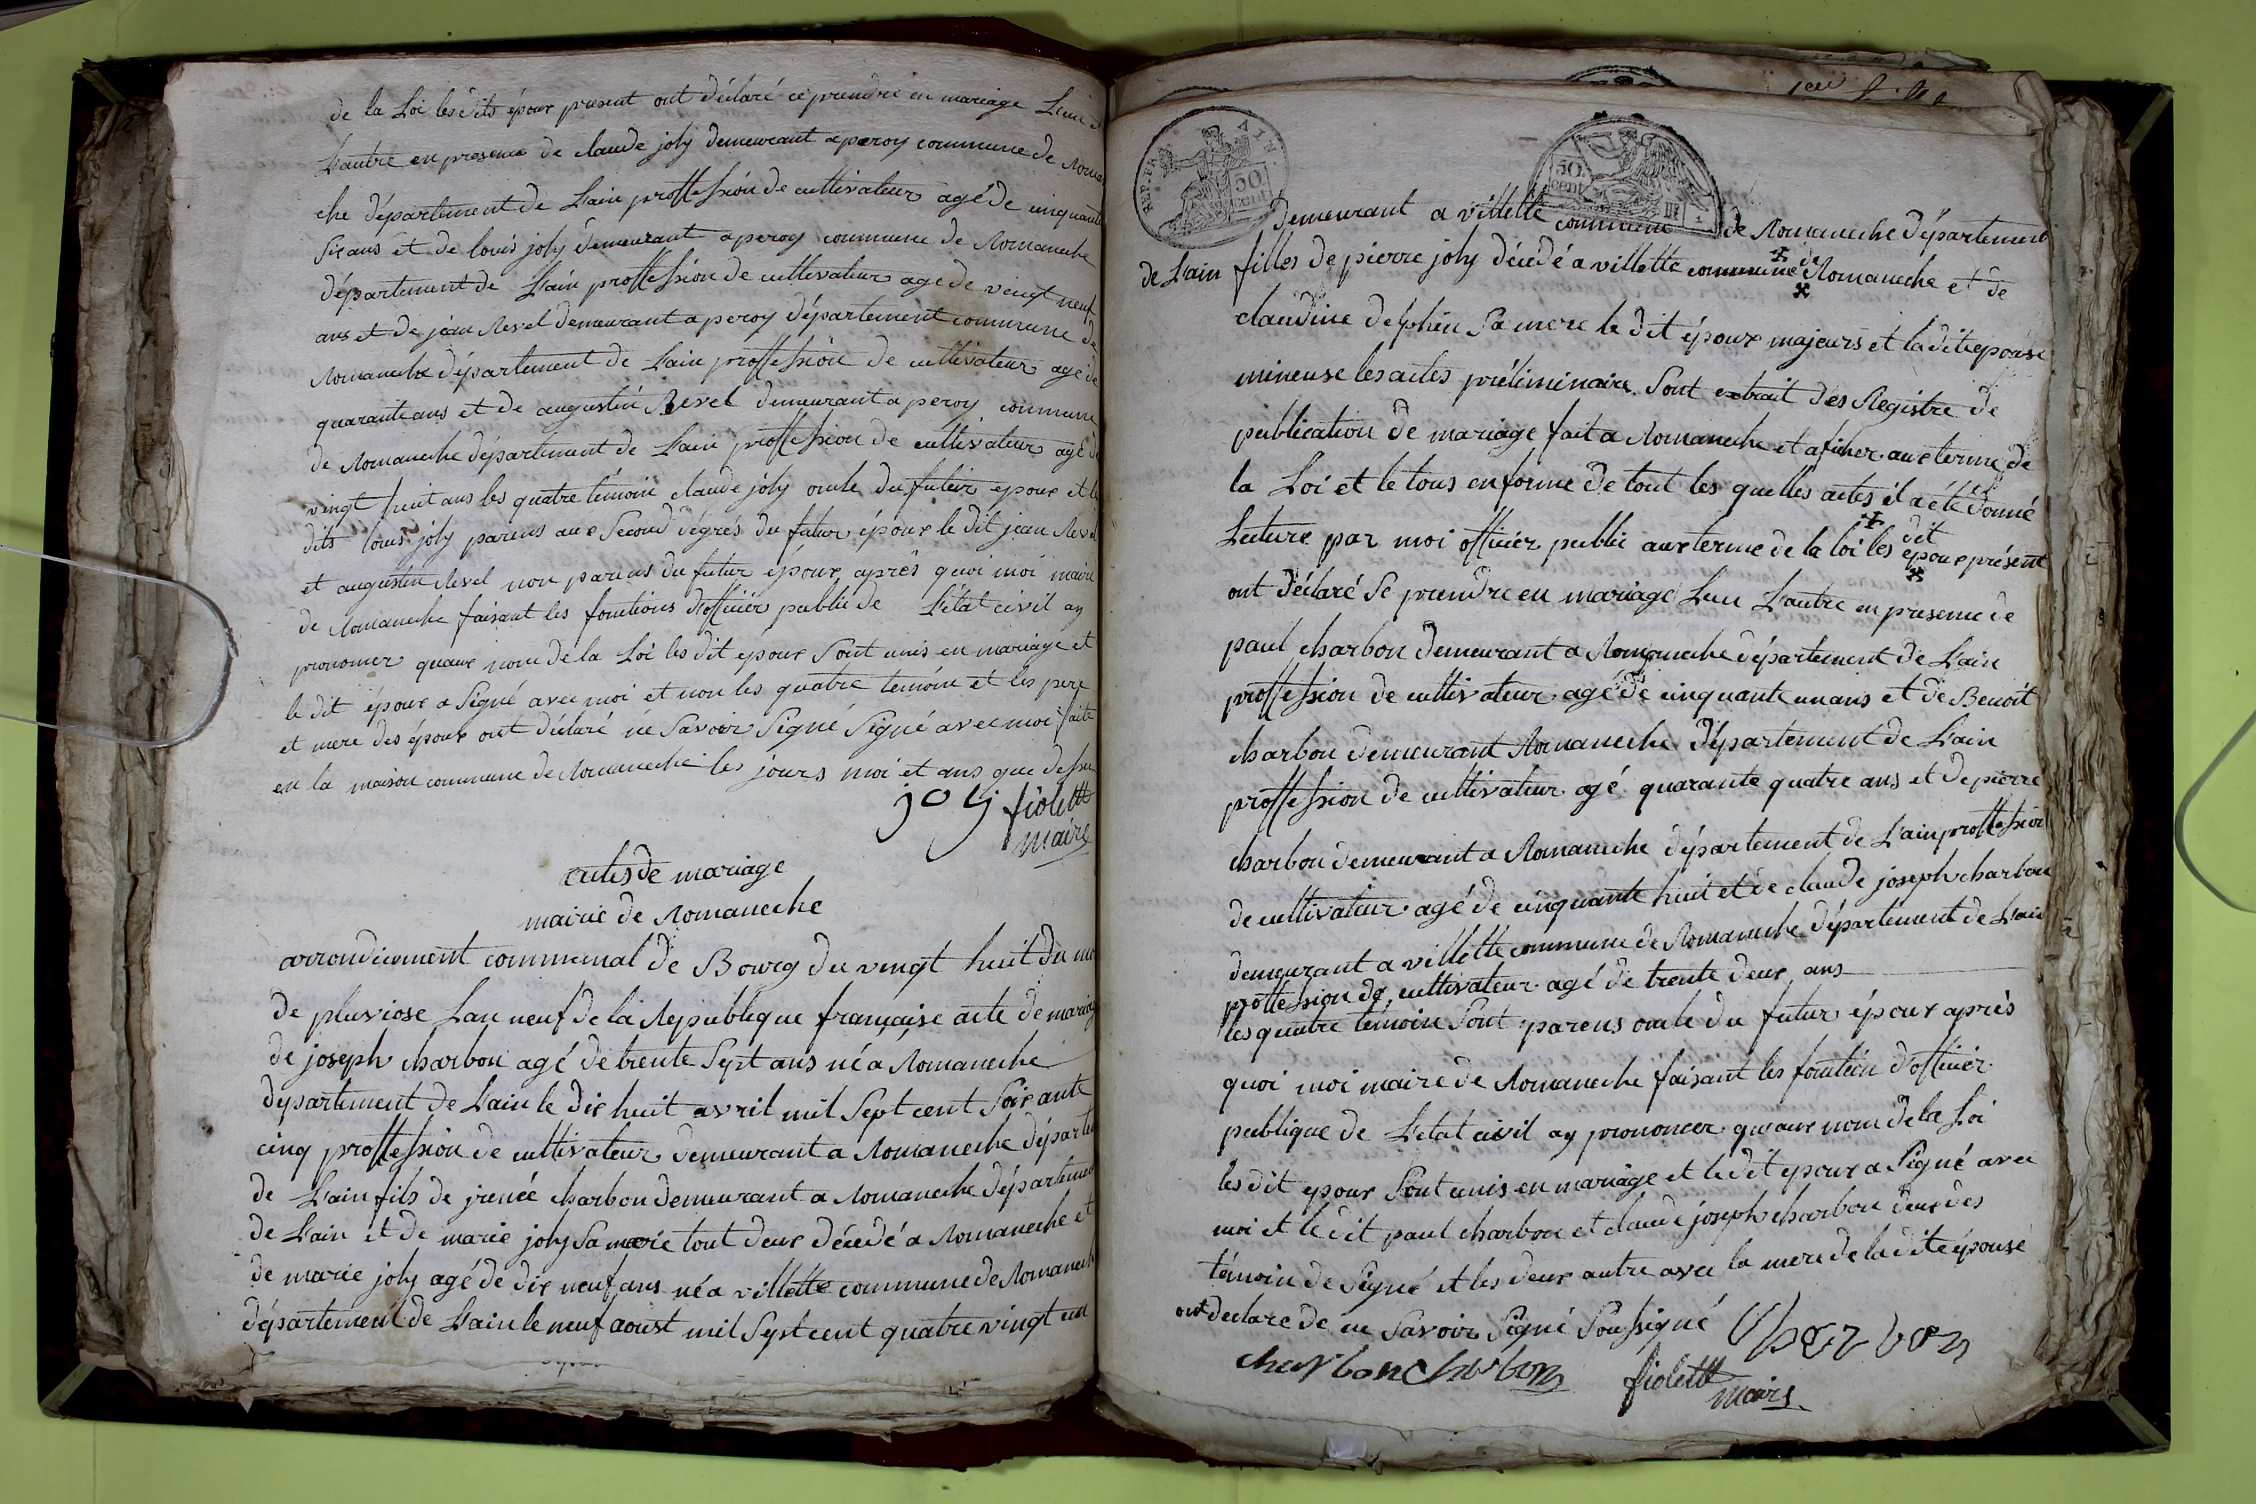 de la Loi les dits épour present ont déclaré ce prendre en mariage Lun
Lautre en presence de claude joly demeurant a peroy commune de Roman
che département de Lain proffession de cultivateur agé de cinquante
six ans et de louis joly demeurant a peroy commune de Romaneche
département de Lain proffession de cultivateur age de veingt neuf
ans et de jean Revel demeurant a peroy département commune de
Romaneche département de Lain proffession de cultivateur age de
quarante ans et de augustin Revel demeurant a peroy commune
de Romaneche département de Lain proffession de cultivateur agé de
vingt huit ans les quatre temoin claude joly oncle du futeur epour et le
dits louis joly parens aux Second dégres du futur épour le dit jean Revel
et augustin Revel non parens du futur épour après quoi moi maire
de Romaneche faisant les fonctions d'officier public de L'état civil ay
prononcer quaux nom de la Loi les dit epour Sont unis en mariage et
le dit épour a Signé avec moi et non les quatre temoin et les pere
et mere des épour ont déclaré ne Savoir Signé Signé avec moi faite
en la maison commune de Romaneche les jours moi et ans que dessu
joly fiolett
maire
actes de mariage
mairie de Romaneche
arrondicement communal de Bourg du vingt huit du moi
de pluviose Lan neuf de la Republique française acte de mariag
de joseph charbon agé de trente Sept ans né a Romaneche
département de Lain le dix huit avril mil Sept cent Soixante
cinq proffession de cultivateur demeurant a Romaneche départe
de Lain fils de jrenée charbon demeurant a Romaneche départemen
de Lain et de marie joly Sa mere tout deux décedé a Romaneche et
de marie joly agé de dix neuf ans né a villette commune de Romanech
département de Lain le neuf aoust mil Sept cent quatre vingt un
REP. FRA. AIN.
50 cent
50 cent
demeurant a villette commune de Romaneche département
de Lain filles de pierre joly décedé a villette commune de Romaneche et de
claudine delphin Sa mere le dit épour majeurs et la dite epouse
mineuse les actes préliminaire Sont extrait des Registre de
publication de mariage fait a Romaneche et aficher aux terme de
la Loi et le tous en forme de tout les quelles actes il a été donné
Lecture par moi officier public aux terme de la loi les dit epour présent
ont déclaré Se prendre en mariage Lun Lautre en presence de
paul charbon demeurant a Romaneche département de Lain
proffession de cultivateur agé de cinquante un ans et de Benoit
charbon demeurant Romaneche département de Lain
proffession de cultivateur agé quarante quatre ans et de pierre
charbon demeurant a Romaneche département de Lain proffession
de cultivateur agé de cinquante huit et de claude joseph charbon
demeurant a villette commune de Romaneche département de Lain
proffession de cultivateur agé de trente deux ans
les quatre temoin Sont parens oncle du futur épour après
quoi moi maire de Romaneche faisant les fonction d'officier
publique de L'état civil ay prononcer quaux nom de la Loi
les dit epour Sont unis en mariage et le dit epour a Signé avec
moi et le dit paul charbon et claude joseph charbon deux des
témoin de Signé et les deux autre avec la mere de la dite épouse
ont declare de ne Savoir Signé Soussigné Charbon
charbon Charbon fiolett
maire